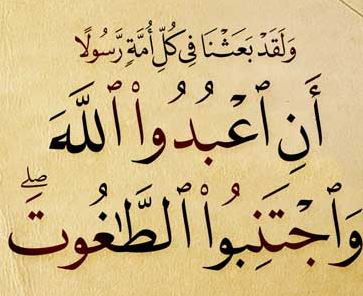 وَلَقَدْ بَعَثْنَا فِي كُلِّ أُمَّةٍ رَّسُولًا
أَنِ ٱعْبُدُوا۟ ٱللَّهَ
وَٱجْتَنِبُوا۟ ٱلطَّـٰغُوتَ ۖ